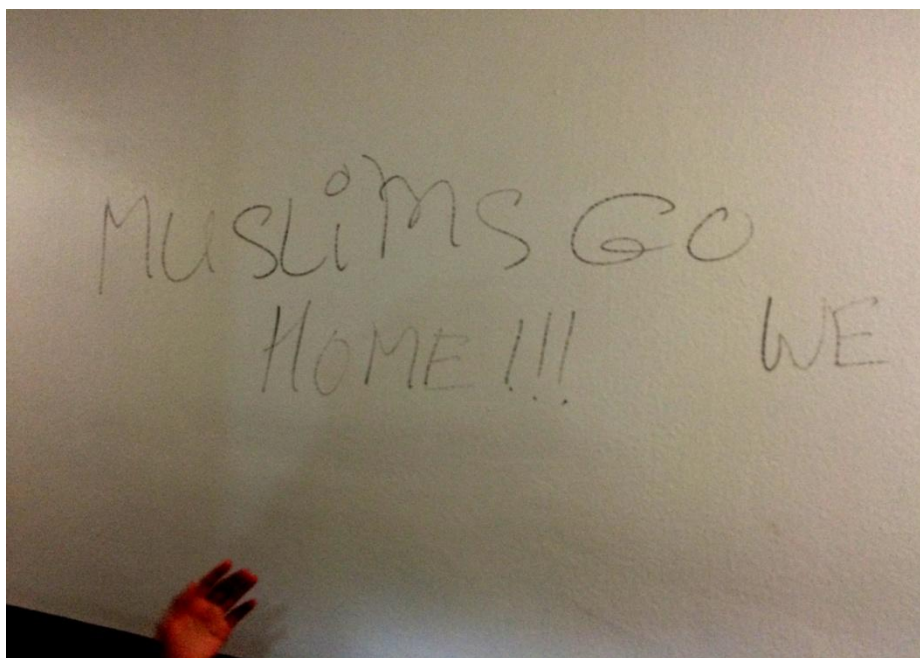 MUSLiMS GO
HOME!!! WE